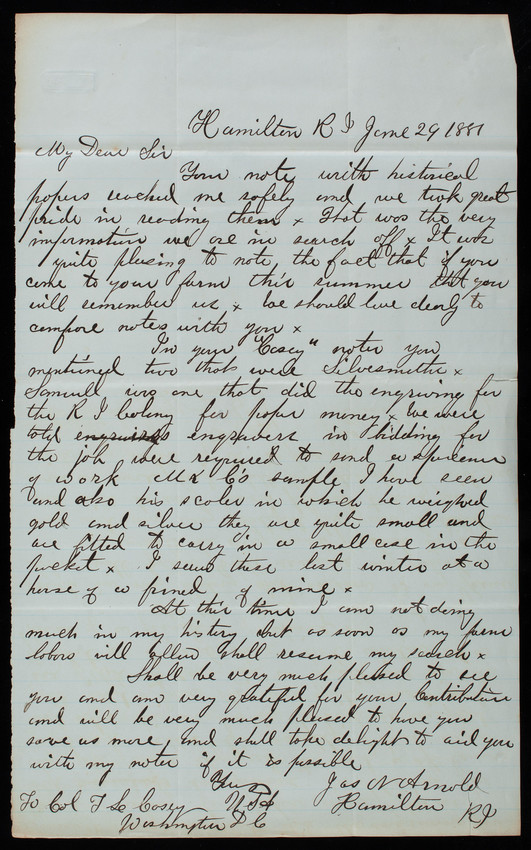 Hamilton R I June 29 1881
My Dear Sir
Your note with historical
papers reached me safely and we took great
pride in reading them x That was the very
information we are in search off x It was
quite plusing to note the fact that if you
came to your farm this summer that you
will remember us x We should love dearly to
compare notes with you x
In your "Casey" notes you
mentioned two that were Silversmiths x
Samuel was one that did the engraving for
the R I Colony for paper money x We were
told engravers in bidding for
the job were required to send a specimen
of work Mr C's sample I have seen
and also his scales in which he weighed
gold and silver they are quite small and
are fitted to carry in a small case in the
pocket x I saw these last winter at a
house of a friend of mine x
At this time I am not doing
much in my history but as soon as my farm
labor will allow shall resume my search x
Shall be very much plused to see
you and am very grateful for your Contribution
and will be very much plused to have you
save us more, and shall take delight to aid you
with my notes if it is possible
Yours Jas N Arnold
To Col T L Casey Hamilton RI
Washington D C